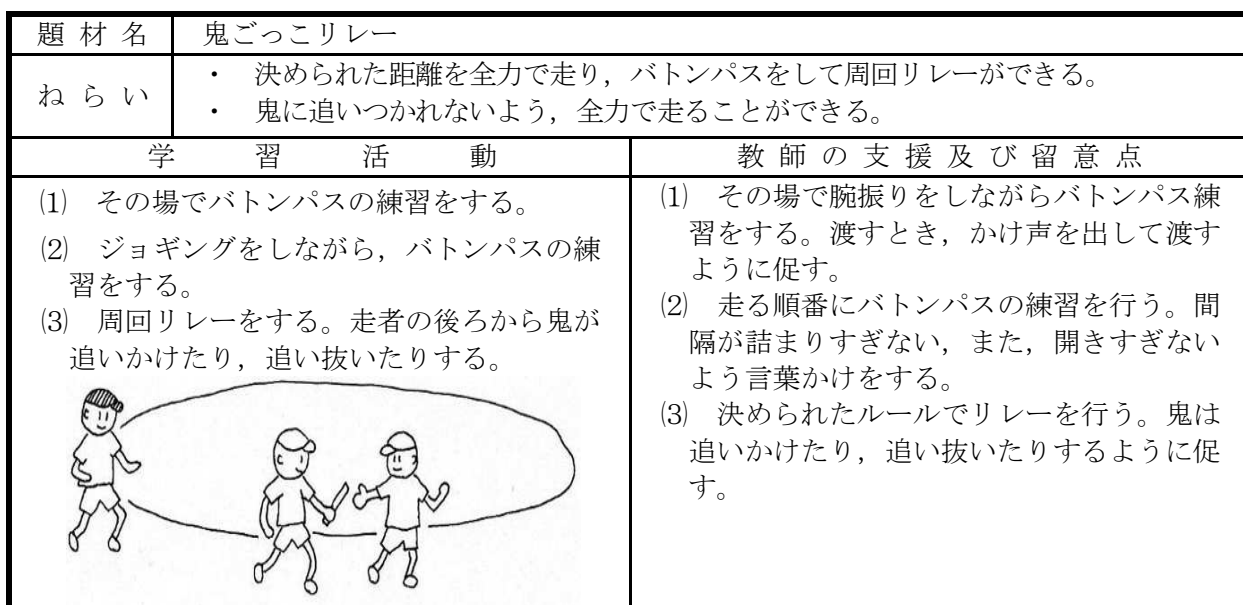 題材名 鬼ごっこリレー
ねらい ・ 決められた距離を全力で走り，バトンパスをして周回リレーができる。
・ 鬼に追いつかれないよう，全力で走ることができる。
学習活動
⑴ その場でバトンパスの練習をする。
⑵ ジョギングをしながら，バトンパスの練
習をする。
⑶ 周回リレーをする。走者の後ろから鬼が
追いかけたり，追い抜いたりする。
教師の支援及び留意点
⑴ その場で腕振りをしながらバトンパス練
習をする。渡すとき，かけ声を出して渡す
ように促す。
⑵ 走る順番にバトンパスの練習を行う。間
隔が詰まりすぎない，また，開きすぎない
よう言葉かけをする。
⑶ 決められたルールでリレーを行う。鬼は
追いかけたり，追い抜いたりするように促
す。